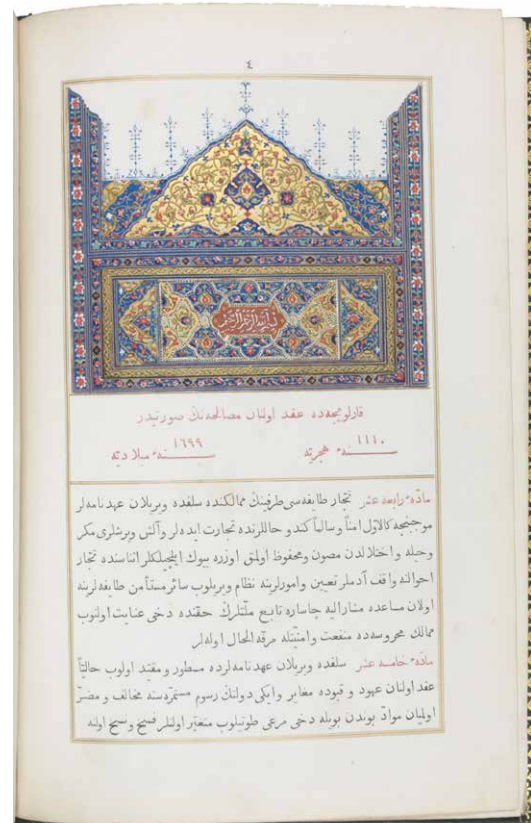 ٤
بسم الله الرحمن الرحيم
قارلويجه‌ده عقد اولنان مصالحه‌نك صورتيدر
سنهٔ ١١١٠ هجريه
سنهٔ ١٦٩٩ ميلاديه
مادهٔ رابعه عشر تجّار طايفه‌سى طرفينك ممالكنده سلفده ويريلان عهدنامه‌لر
موجبنجه كالاوّل امناً وسالماً كندو حاللرنده تجارت ايده‌لر وآلش ويرشلرى مكر
وحيله واختلالدن مصون ومحفوظ اولمق اوزره بيوك ايلچيلكلر اثناسنده تجّار
احوالنه واقف آدملر تعيين وامورلرينه نظام ويريلوب سائر مستأمن طايفه‌لرينه
اولان مساعده مشاراليه چاساره تابع ملّتلرك حقنده دخى عنايت اولنوب
ممالك محروسه‌ده منفعت وامنيّتله مرفّه الحال اوله‌لر
مادهٔ خامسه عشر سلفده ويريلان عهدنامه‌لرده مسطور ومقيّد اولوب حالياً
عقد اولنان عهود وقيوده مغاير وايكى دولتك رسوم مستمرّه‌سنه مخالف ومضرّ
اوليان موادّ بوندن بويله دخى مرعى طوتيلوب متغيّر اولنلر فسيخ ونسيخ اولنه